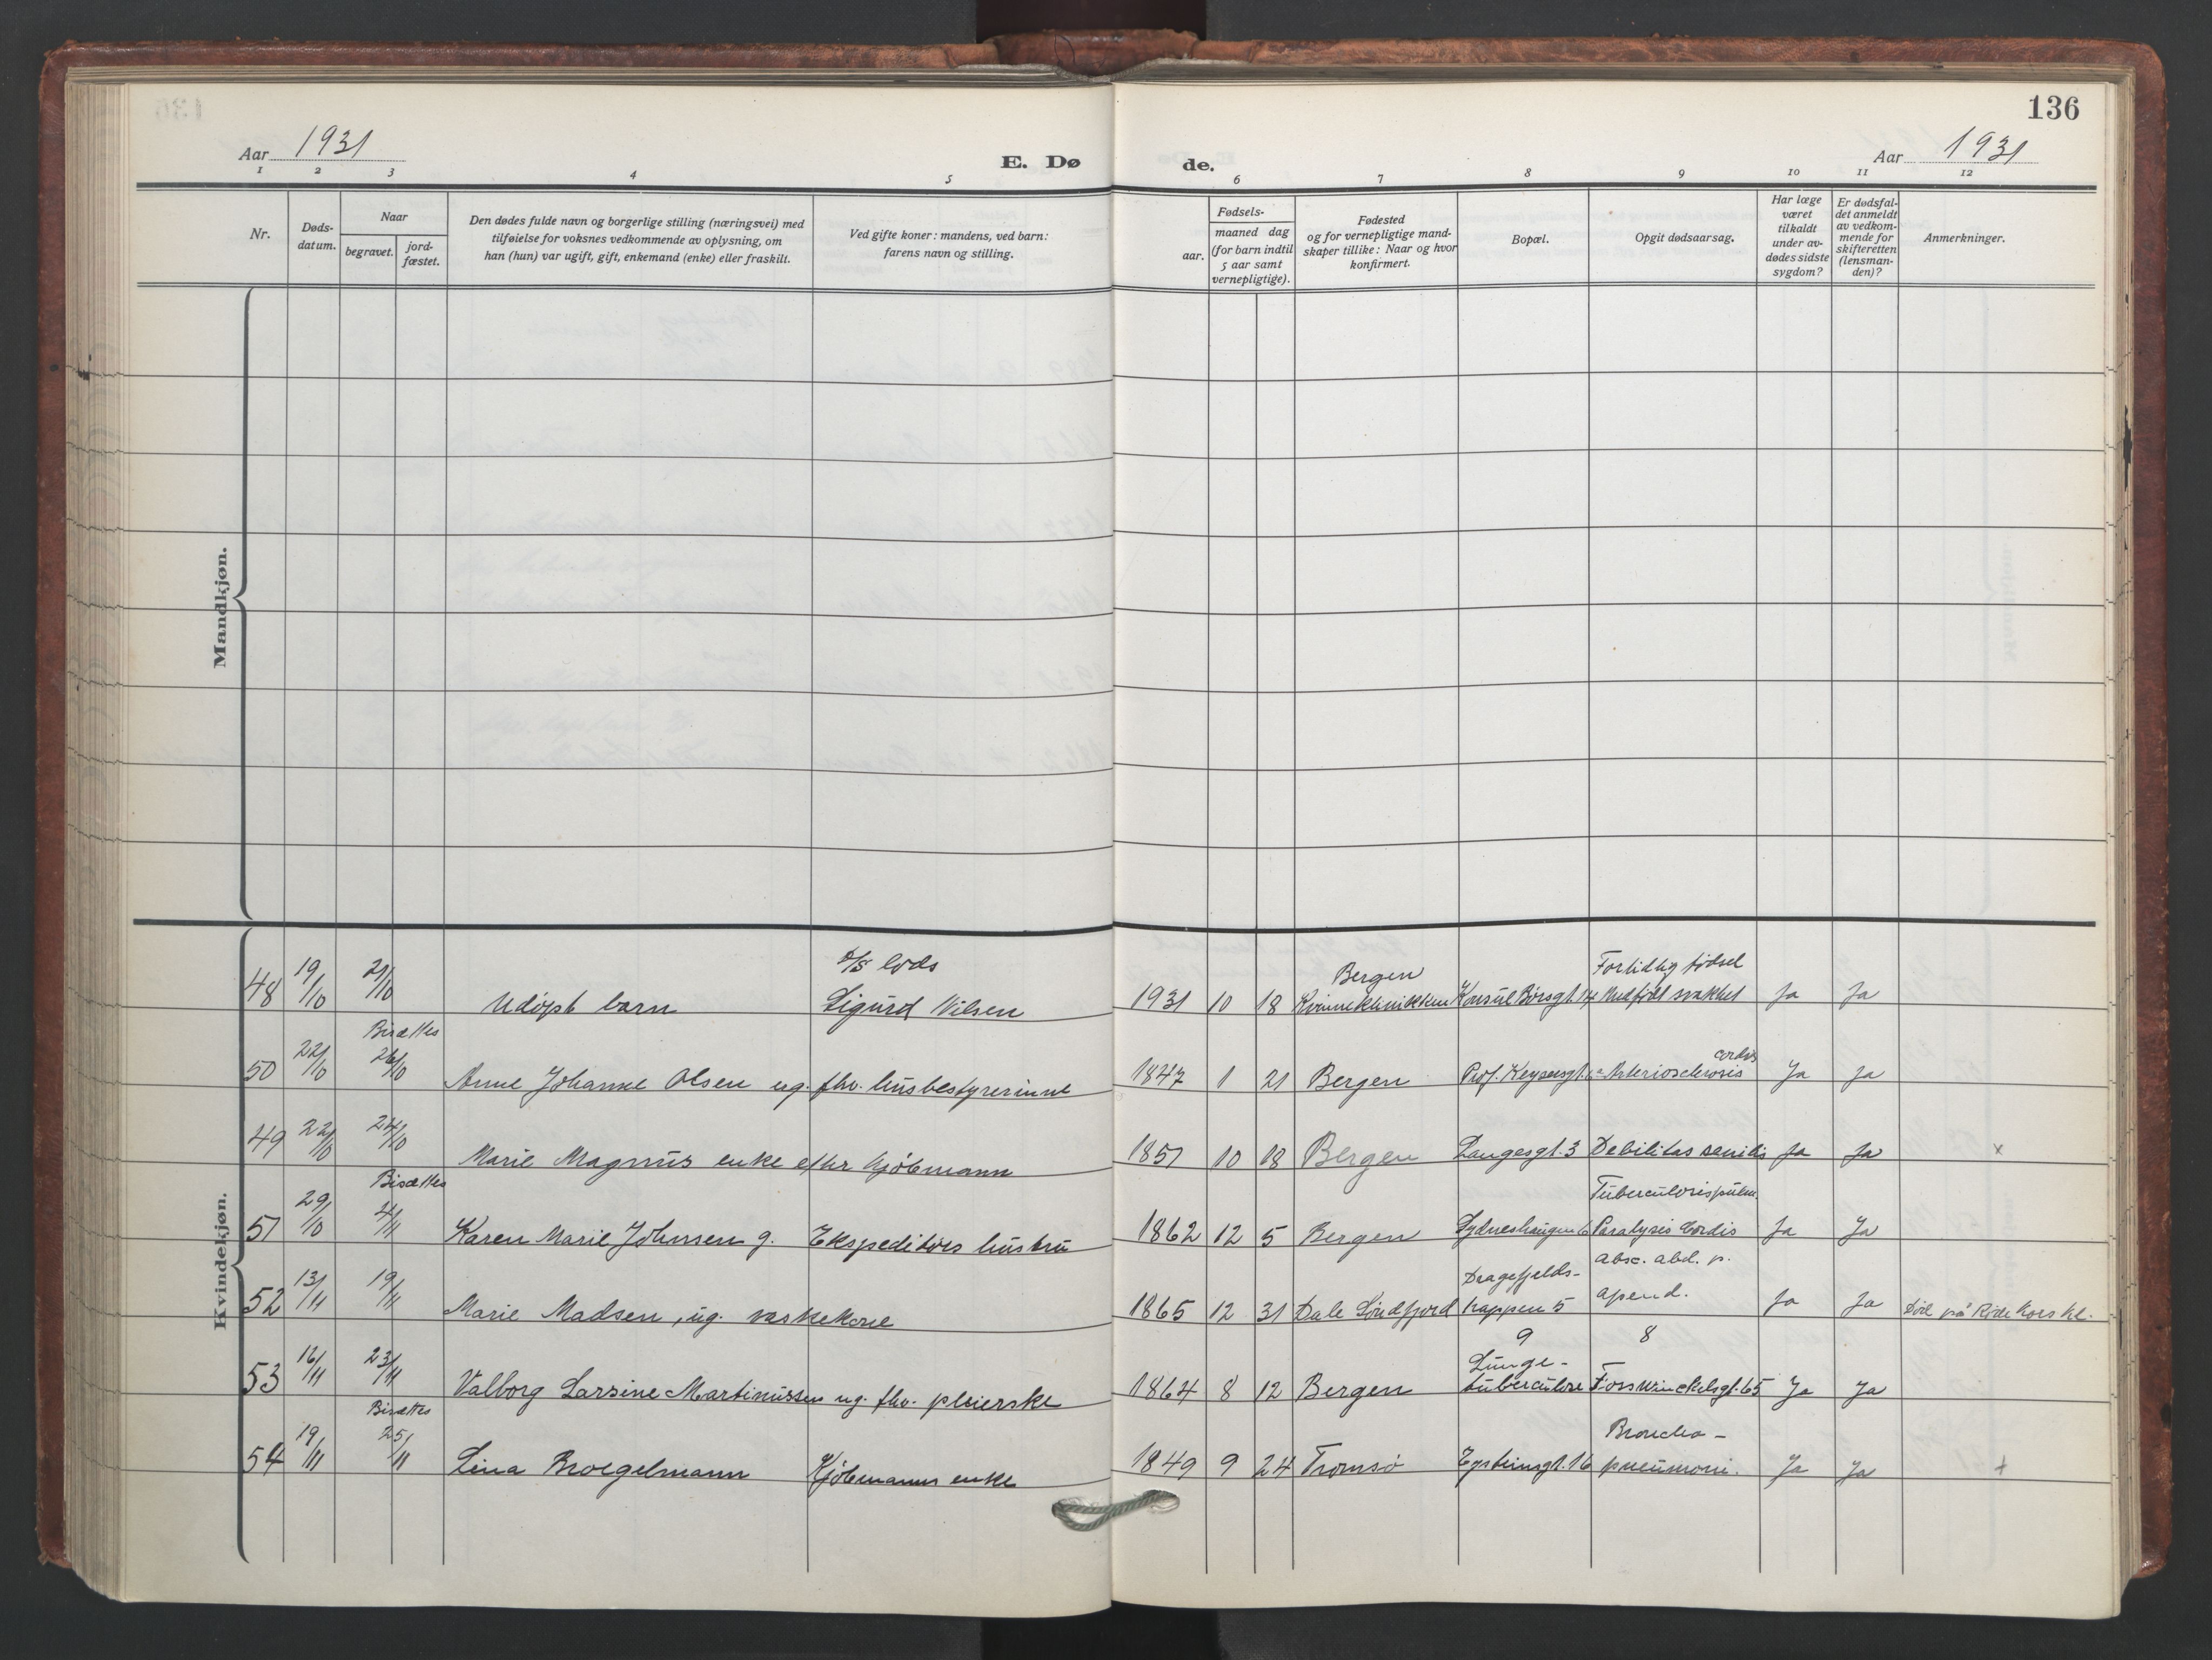 136
Aar 1931
E. Dø de.
Aar 1931
1 2 3 4 5 6 7 8 9 10 11 12
Nr.
Døds-
datum.
Naar
begravet.
jord-
fæstet.
Den dødes fulde navn og borgerlige stilling (næringsvei) med
tilføielse for voksnes vedkommende av oplysning, om
han (hun) var ugift, gift, enkemand (enke) eller fraskilt.
Ved gifte koner: mandens, ved barn:
farens navn og stilling.
aar.
Fødsels-
maaned dag
(for barn indtil
5 aar samt
vernepligtige).
Fødested
og for vernepligtige mand-
skaper tillike: Naar og hvor
konfirmert.
Bopæl.
Opgit dødsaarsag.
Har læge
været
tilkaldt
under av-
dødes sidste
sygdom?
Er dødsfal-
det anmeldt
av vedkom-
mende for
skifteretten
(lensman-
den)?
Anmerkninger.
Mandkjøn.
Kvindekjøn.
lods Bergen Fortidlig fødsel
48 19/10 21/10 Udöpt barn Sigurd Nilsen 1931 10 18 Kvinneklinikken Konsul Börsgt. 14 Medfödt svakhet Ja Ja
Bisættes cordis
50 22/10 26/10 Anne Johanne Olsen ug. fhv. husbestyrerinne 1847 1 21 Bergen Prof. Keysersgt. Arteriosclerosis Ja Ja
49 22/10 24/10 Marie Magnus enke efter kjöbmann 1851 10 18 Bergen Langesgt. 3 Debilitas senilis Ja Ja x
Bisættes Tuberculosis pulm.
51 29/10 4/11 Karen Marie Johnsen g. Ekspeditörs hustru 1862 12 5 Bergen Sydneshaugen 6 Paralysis Cordis Ja Ja
Dragefjelds- absc. abd. p.
52 13/11 19/11 Marie Madsen, ug. vaskekone 1865 12 31 Dale Söndfjord trappen 5 apend. Ja Ja Död på Röde Kors kl.
9 8
Lunge-
53 16/11 23/11 Valborg Larsine Martinussen ug. fhv. pleierske 1864 8 12 Bergen tuberculose Fosswinckelsgt. 65 Ja Ja
Bisættes Broncho-
54 19/11 25/11 Lina Broegelmann Kjöbmanns enke 1849 9 24 Tromsö Eysteinsgt. 16 pneumoni. Ja Ja +